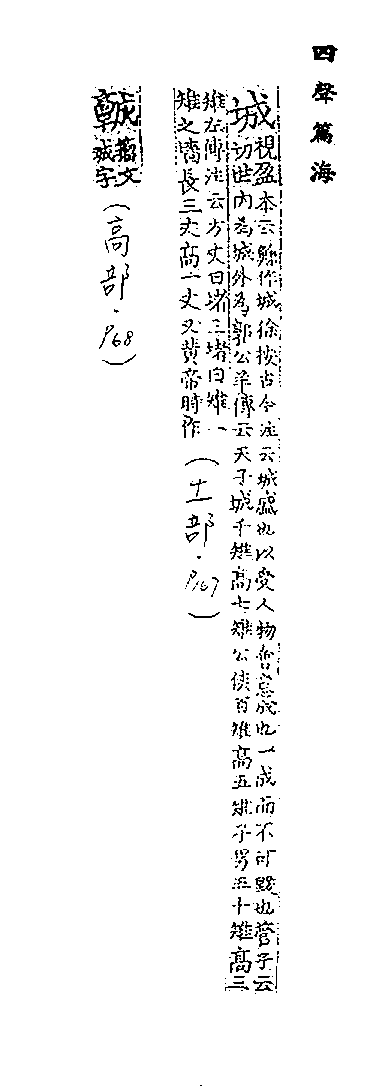 四聲篇海
城視盈本云鯀作城徐按古今注云城盛也以受人物
也一成而不可毀也管子云
切世內為城外為郭公羊傳云天子城千雉高七雉公侯百雉高五雉子男五十雉高三
雉左傳注云方丈曰堵三堵曰雉一
雉之墻長三丈高一丈又黃帝時作
(土部.P167)
籀文
城字
(高部.P68)